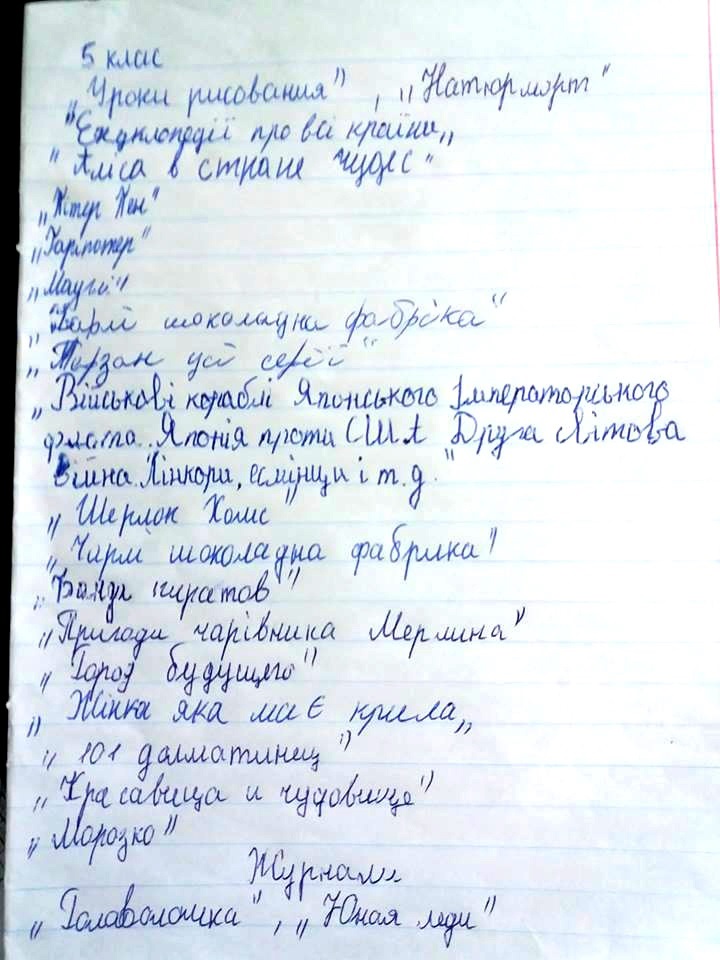 5 клас
„Уроки рисования”, „Натюрморт”
"Енциклопедії про всі країни„
"Аліса в стране чудес"
„Пітер Пен"
„Гарпотер"
„Мауглі"
„Чарлі шоколадна фабріка"
„Тарзан усі серії"
„Військові кораблі Японського Імператорського
флота. Японія проти США "Друга Світова
війна. Лінкори, есмінци і т.д.
„Шерлок Холмс"
„Чарлі шоколадна фабрика"
„Банда пиратов"
„Пригоди чарівника Мерлина"
„Город будущего"
„Жінка яка має крила„
„101 далматинец"
„Красавица и чудовище"
„Морозко"
Журнали
„Головоломка", „Юная леди"